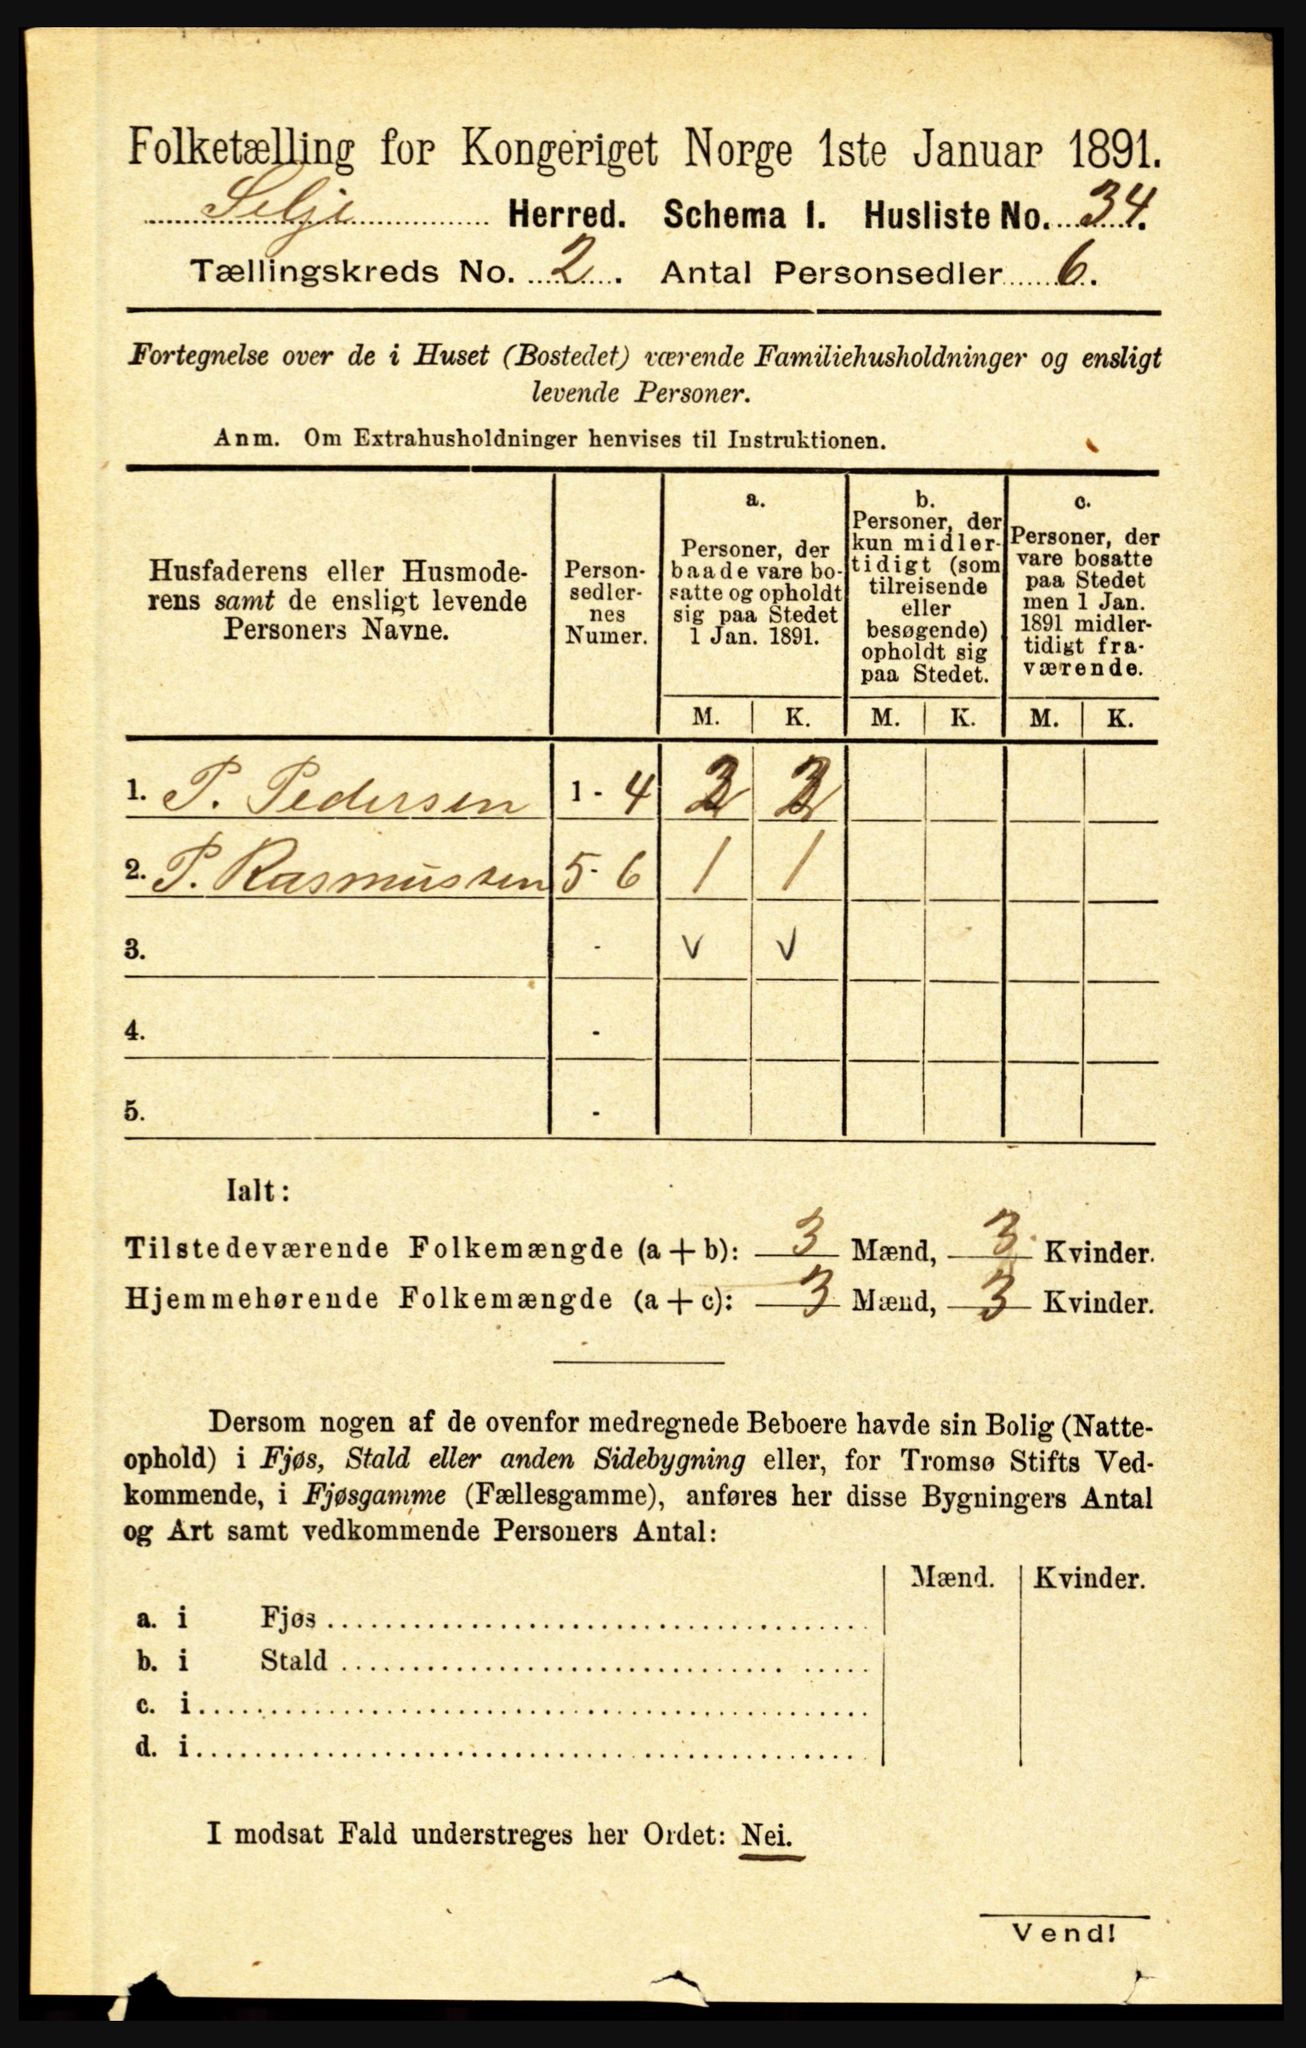 Folketælling for Kongeriget Norge 1ste Januar 1891.
Selje Herred. Schema I. Husliste No. 34.
Tællingskreds No. 2. Antal Personsedler 6.
Fortegnelse over de i Huset (Bostedet) værende Familiehusholdninger og ensligt
levende Personer.
Anm. Om Extrahusholdninger henvises til Instruktionen.
Husfaderens eller Husmode-
rens samt de ensligt levende
Personers Navne.
Person-
sedler-
nes
Numer.
a.
Personer, der
baade vare bo-
satte og opholdt
sig paa Stedet
1 Jan. 1891.
b.
Personer, der
kun midler-
tidigt (som
tilreisende
eller
besøgende)
opholdt sig
paa Stedet.
c.
Personer, der
vare bosatte
paa Stedet
men 1 Jan.
1891 midler-
tidigt fra-
værende.
M. K. M. K. M. K.
1. P. Pedersen 1 - 4 2 2
2. P. Rasmussen 5 - 6 1 1
3. - v v
4. -
5. -
Ialt:
Tilstedeværende Folkemængde (a + b): 3 Mænd, 3 Kvinder.
Hjemmehørende Folkemængde (a + c): 3 Mænd, 3 Kvinder.
Dersom nogen af de ovenfor medregnede Beboere havde sin Bolig (Natte-
ophold) i Fjøs, Stald eller anden Sidebygning eller, for Tromsø Stifts Ved-
kommende, i Fjøsgamme (Fællesgamme), anføres her disse Bygningers Antal
og Art samt vedkommende Personers Antal:
Mænd. Kvinder.
a. i Fjøs
b. i Stald
c. i
d. i
I modsat Fald understreges her Ordet: Nei.
Vend!